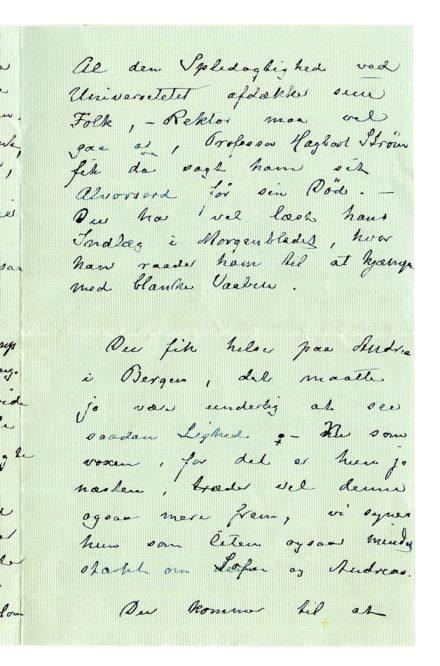 Al den Spledagtighed ved
Universitetet afdækker sine
Folk, – Rektor maa vel
gaa af, Professor Hagbart Strøm
fik da sagt ham sit
Alvorsord før sin Død. –
Du har vel læst hans
Indlæg i Morgenbladet, hvor
han raader ham til at kjæmpe
med blanke Vaaben.
Du fik hilse paa Andrea
i Bergen, det maatte
jo være underlig at see
saadan Lighed – Nu som
voxen, for det er hun jo
næsten, træder vel denne
ogsaa mere frem, vi synes
hun som liten ogsaa mindet
stærkt om og Andreas.
Du kommer til at